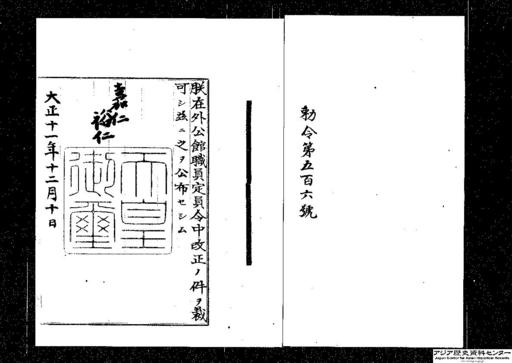 勅令第五百六號
朕在外公館職員定員令中改正ノ件ヲ裁
可シ茲ニ之ヲ公布セシム
嘉仁
裕仁
天皇
御璽
大正十一年十二月十日
アジア歴史資料センター
Japan Center for Asian Historical Records